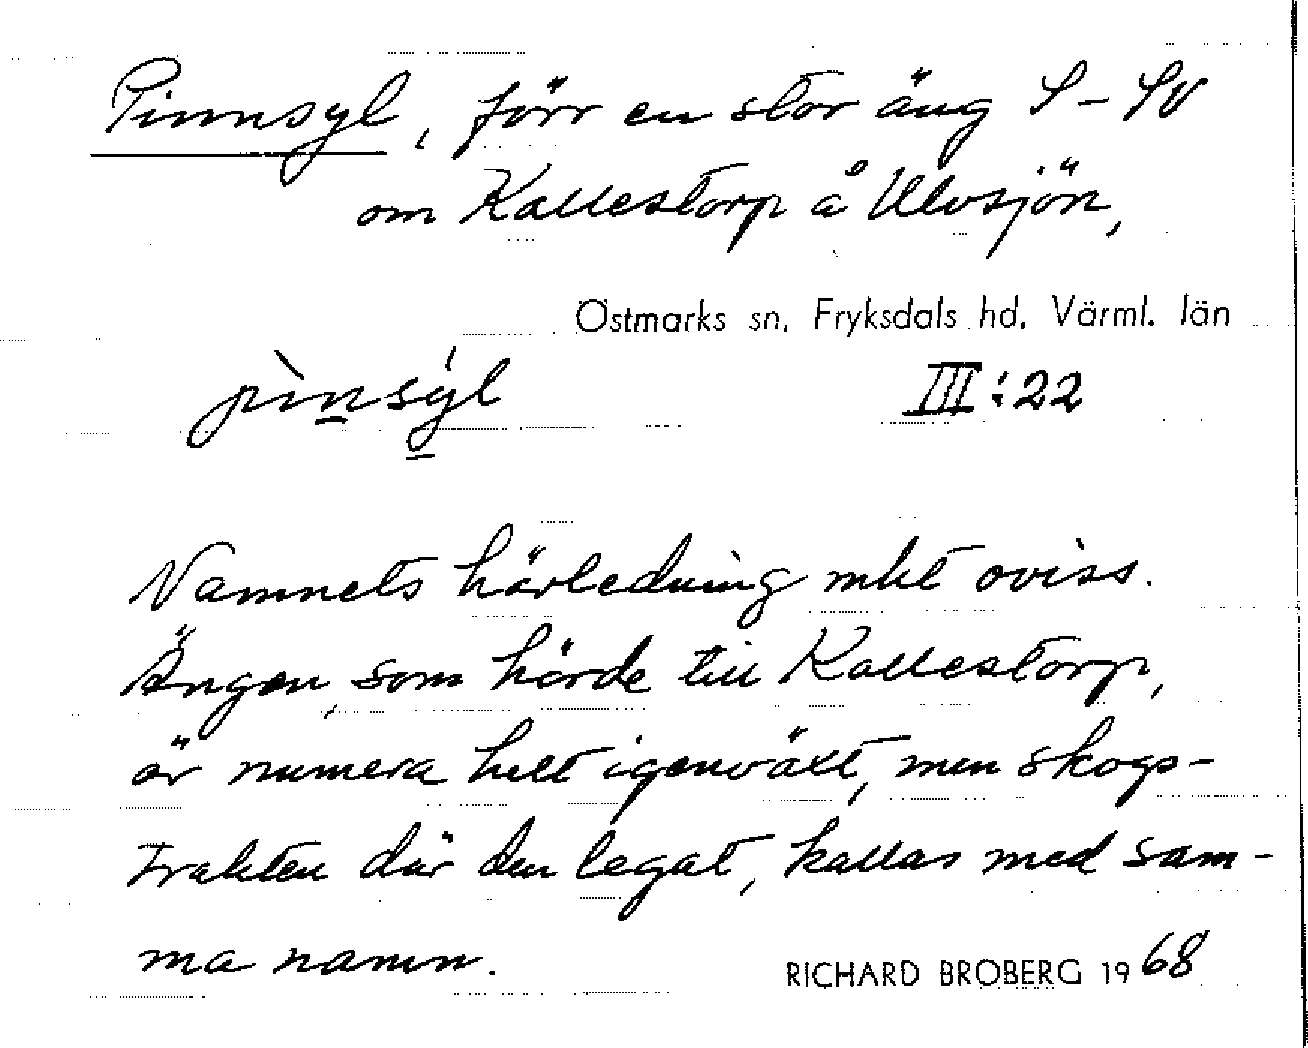 Pinnsyl, förr en stor äng S–SV
om Kallestorp å Ulvsjön,
Östmarks sn, Fryksdals hd, Värml. län
pìnsýl III:22
Namnets härledning mkt oviss.
Ängen, som hörde till Kallestorp,
är numera helt igenväxt, men skogs-
trakten där den legat, kallas med sam-
ma namn.
RICHARD BROBERG 1968